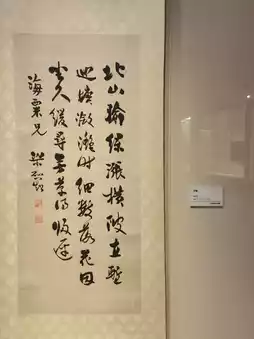 北山輸綠漲橫陂直塹
迴塘瀲灩時細數落花因
坐久緩尋芳草得歸遲
海粟兄
梁啟超